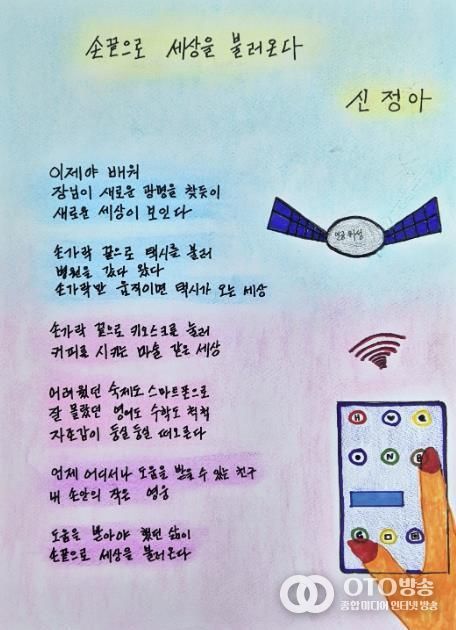 손끝으로 세상을 불러온다
신정아
이제야 배워
장님이 새로운 광명을 찾듯이
새로운 세상이 보인다
손가락 끝으로 택시를 불러
병원을 갔다 왔다
손가락만 움직이면 택시가 오는 세상
손가락 끝으로 키오스크를 눌러
커피를 시키는 마술 같은 세상
어려웠던 숙제도 스마트폰으로
잘 몰랐던 영어도 수학도 척척
자존감이 둥실둥실 떠오른다
언제 어디서나 도움을 받을 수 있는 친구
내 손안의 작은 영웅
도움을 받아야 했던 삶이
손끝으로 세상을 불러온다
인공위성
H
N
G
OTO방송
종합미디어 인터넷 방송